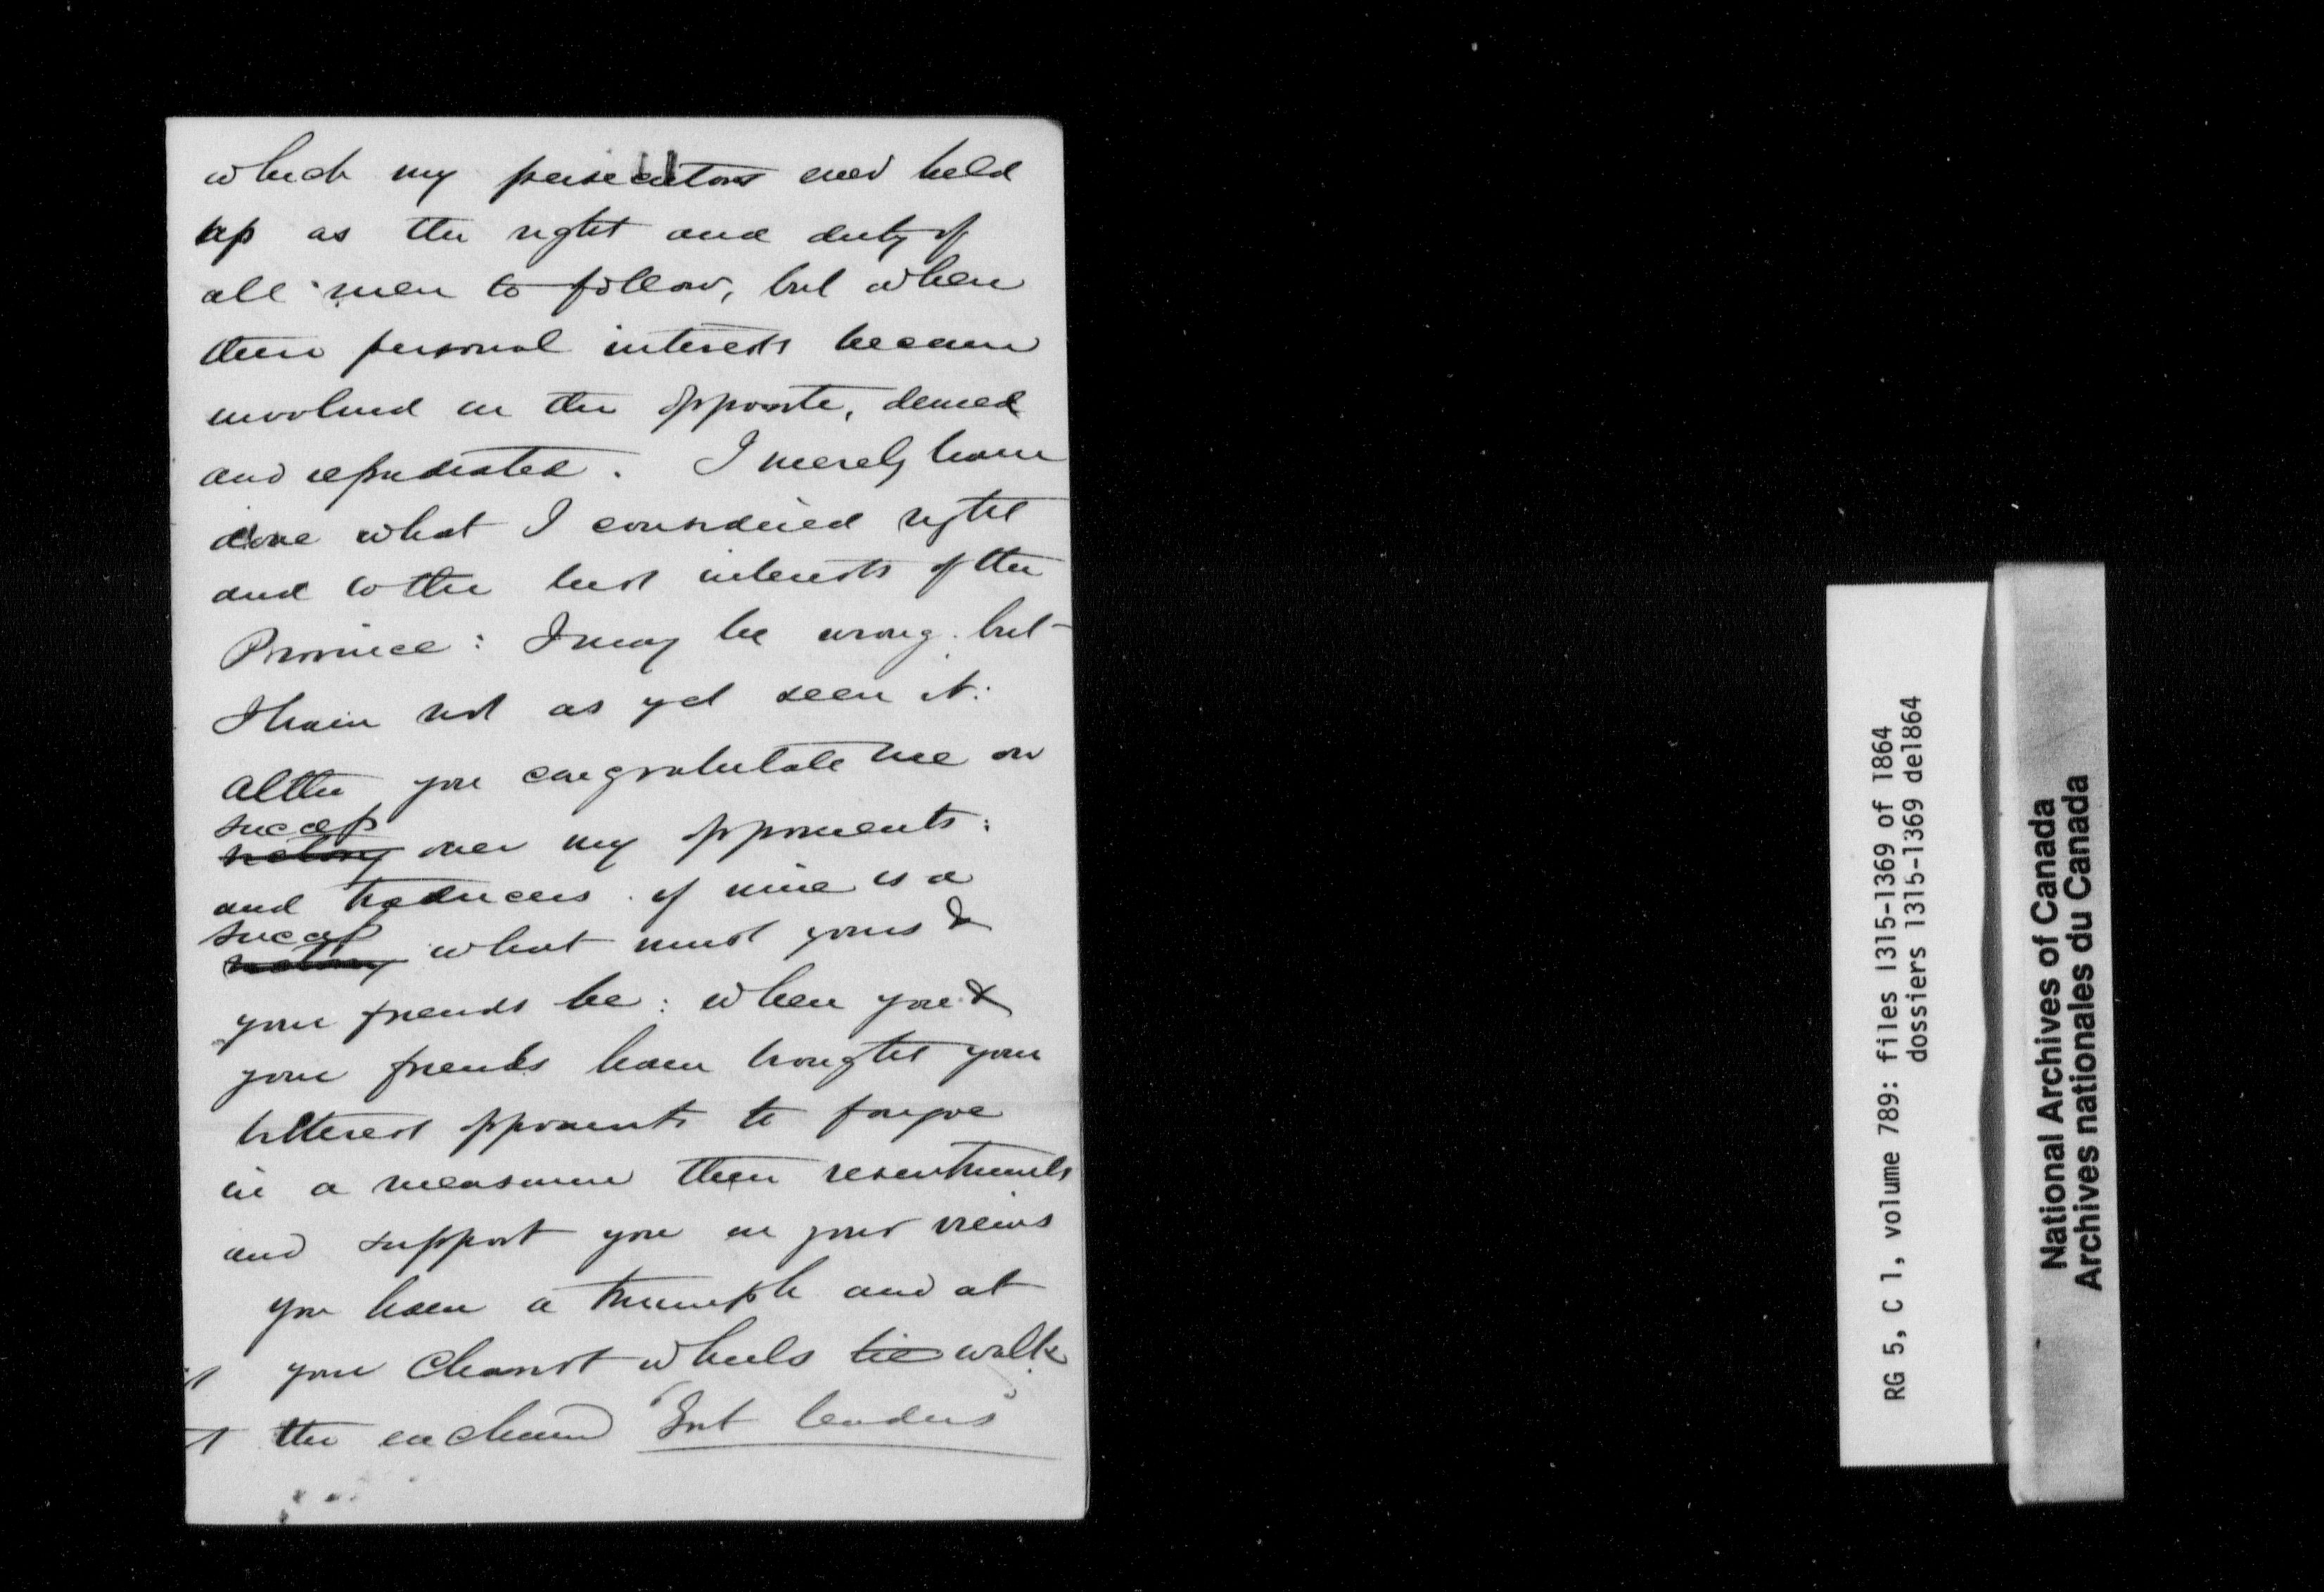 which my persecutors ever held
up as the right and duty of
all men to follow, but when
their personal interests became
involved in the opposite, denied
and repudiated. I merely have
done what I considered right
and to the best interests of the
Province: I may be wrong. but
I have not as yet seen it:
altho you congratulate me on
success
victory over my opponents:
and traducers. if mine is a
success
victory what must yours &
your friends be: when you &
your friends have brought your
bitterest opponents to forgive
in a measure their resentments
and support you in your views
you have a triumph and at
your chariot wheels walk
the enchained "Grit leaders"
RG 5, C 1, volume 789: files 1315-1369 of 1864
dossiers 1315-1369 de1864
National Archives of Canada
Archives nationales du Canada